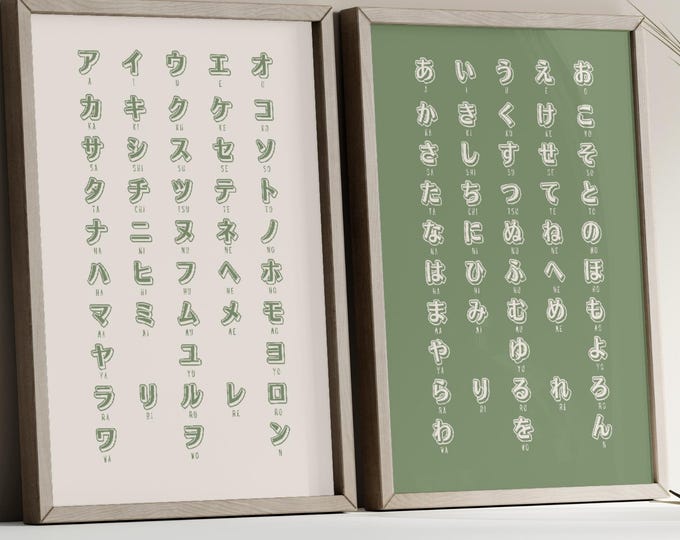 アイウエオ
A I U E O
カキクケコ
KA KI KU KE KO
サシスセソ
SA SHI SU SE SO
タチツテト
TA CHI TSU TE TO
ナニヌネノ
NA NI NU NE NO
ハヒフヘホ
HA HI HU HE HO
マミムメモ
MA MI MU ME MO
ヤユヨ
YA YU YO
ラリルレロ
RA RI RU RE RO
ワヲン
WA WO N
あいうえお
A I U E O
かきくけこ
KA KI KU KE KO
さしすせそ
SA SHI SU SE SO
たちつてと
TA CHI TSU TE TO
なにぬねの
NA NI NU NE NO
はひふへほ
HA HI HU HE HO
まみむめも
MA MI MU ME MO
やゆよ
YA YU YO
らりるれろ
RA RI RU RE RO
わをん
WA WO N